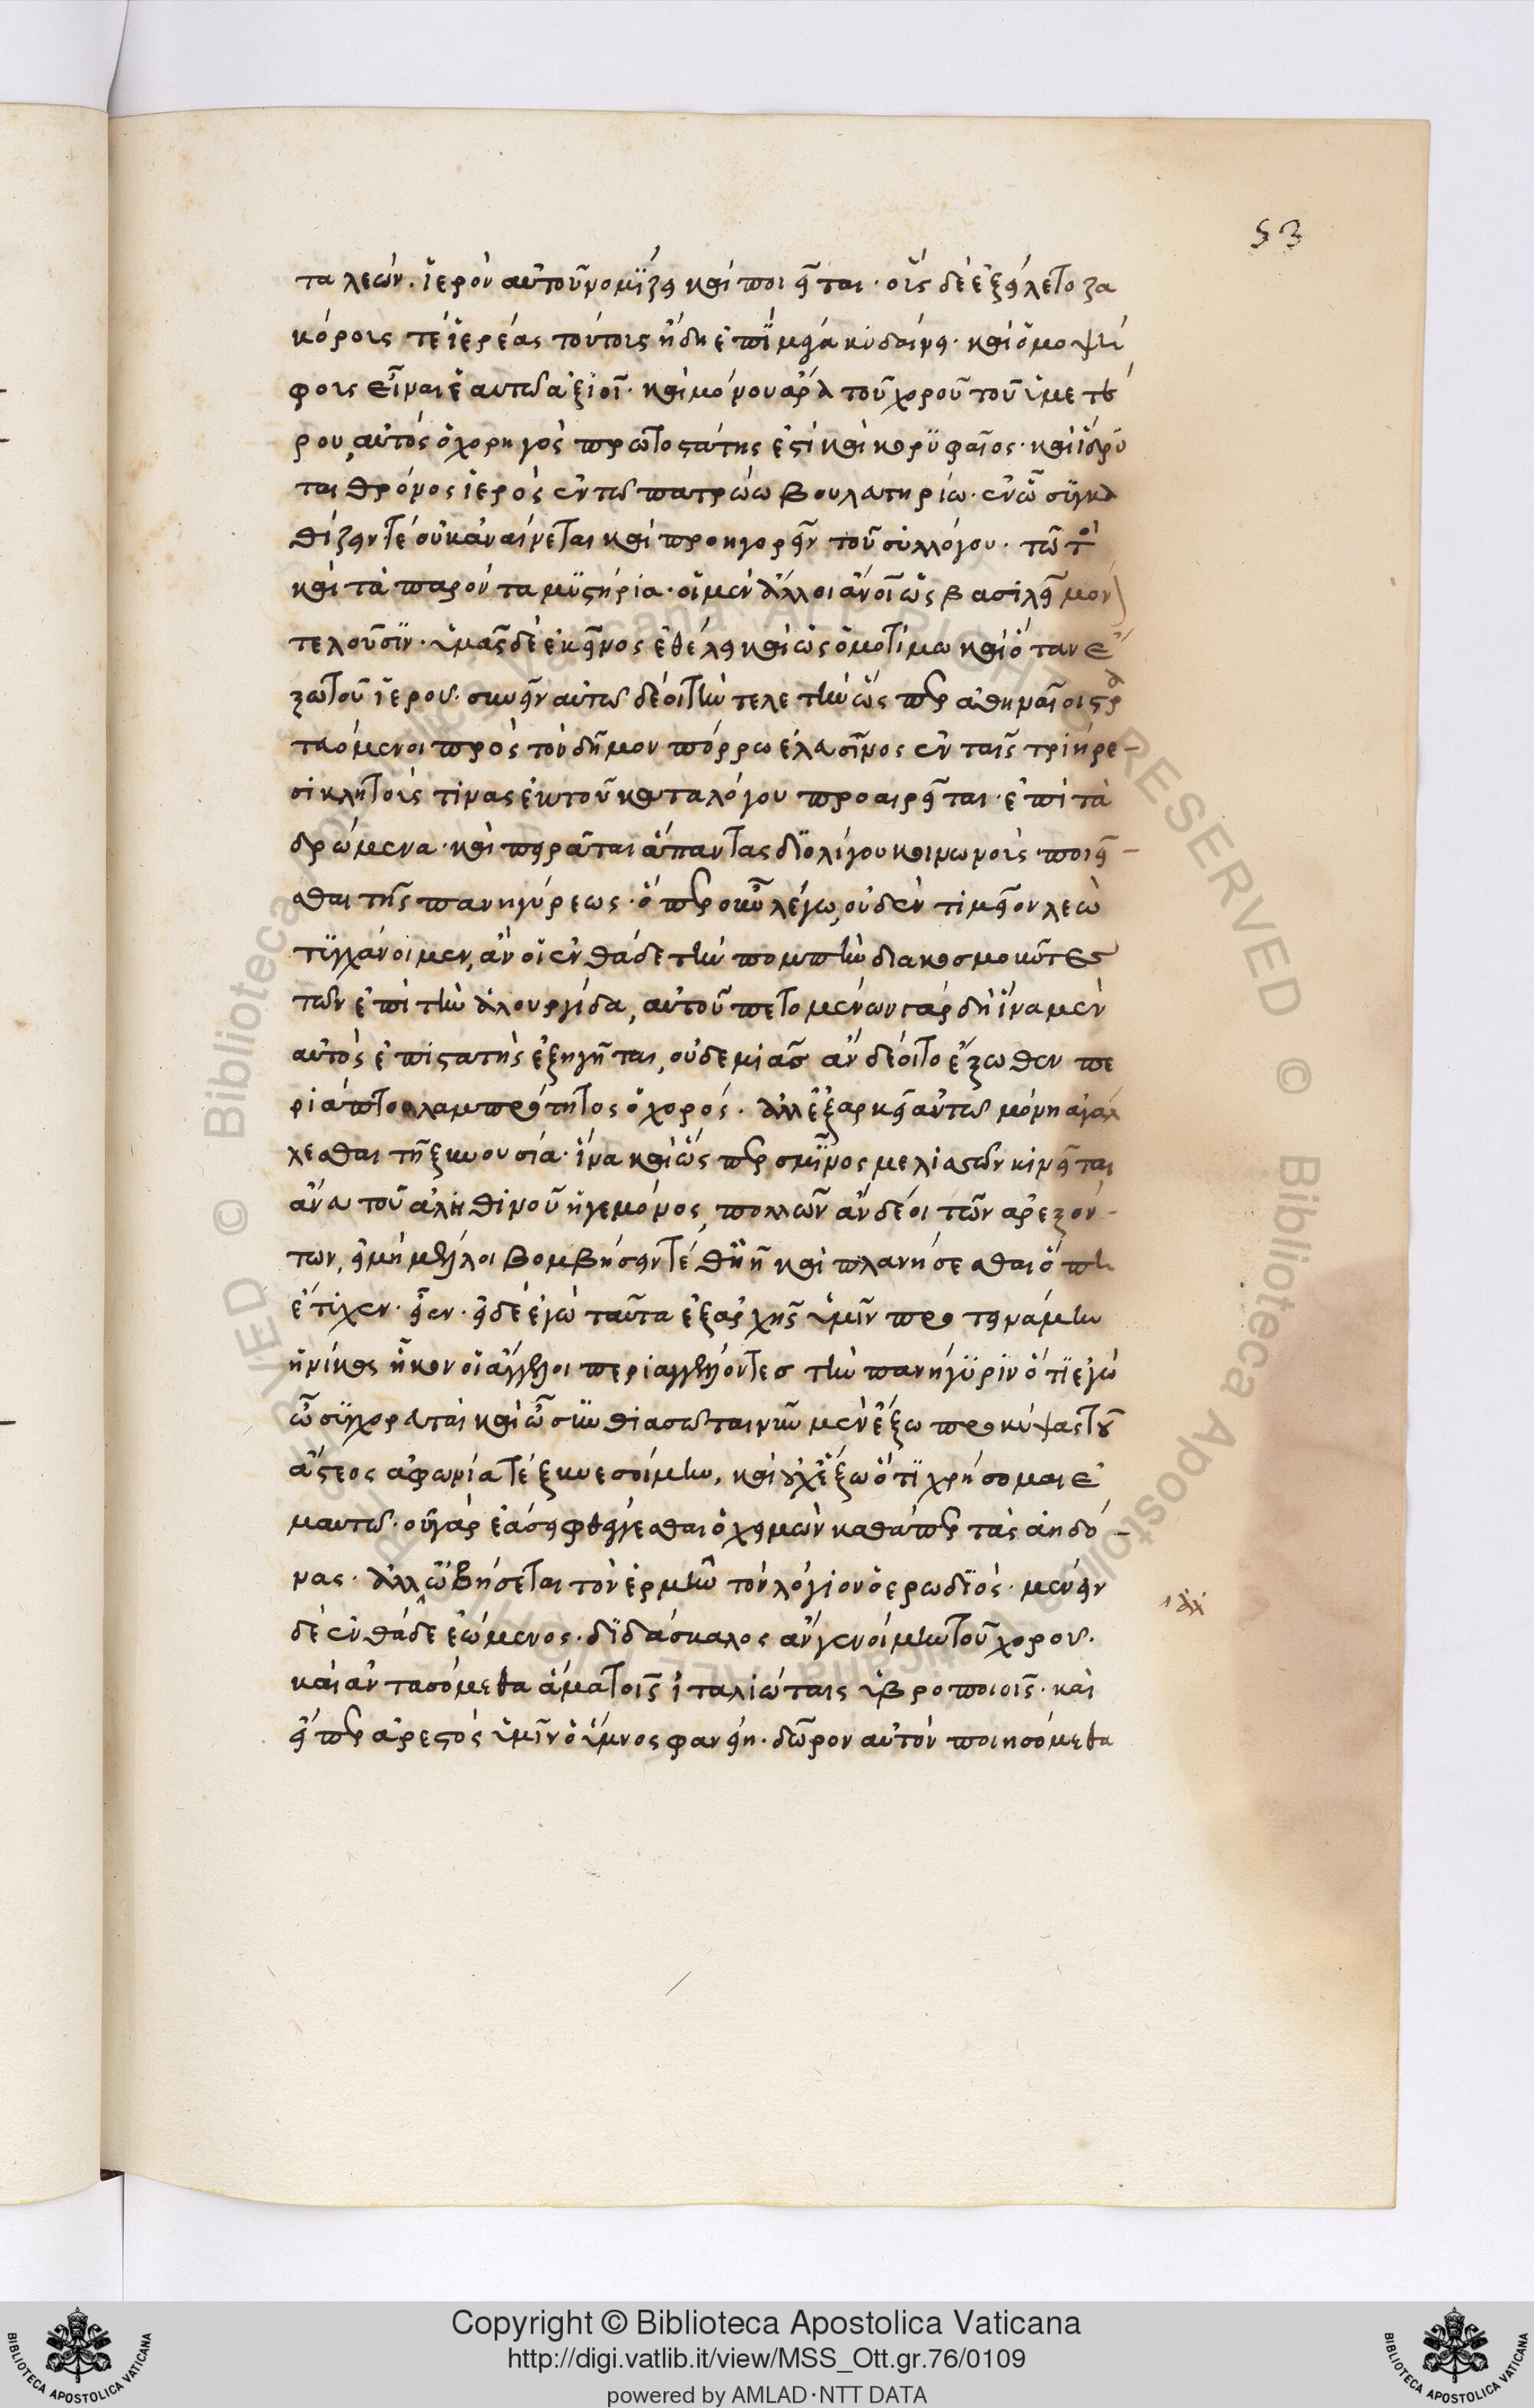 53
τα λεών. ἱερὸν αὐτοῦ νομίζει καὶ ποιεῖται· οἷς δὲ ἐξείλετο ζα
κόροις τὲ ἱερέας τούτοις ἤδη ἐπὶ μέγα κυδαίνει· καὶ ὁμοψή
φοις εἶναι ἑαυτῶ ἀξιοῖ· καὶ μόνου ἄρα τοῦ χοροῦ τοῦ ὑμετέ
ρου, αὐτὸς ὁ χορηγὸς πρωτοστάτης ἐστὶ καὶ κορυφαῖος· καὶ ἵδρυ
ται θρόνος ἱερὸς ἐν τῶ πατρώω βουλευτηρίω· ἐν ὧ συγκα
θίζειν τὲ οὐκ ἀναίνεται καὶ προηγορεῖν τοῦ συλλόγου· τῶ τοι
καὶ τὰ παρόντα μυστήρια· οἱ μὲν ἄλλοι ἄνοι ὡς βασιλεῖ μὸν
τελοῦσιν· ὑμᾶς δὲ ἐκεῖνος ἐθέλει καὶ ὡς ὁμοτίμω καὶ ὅταν ἔ
ξω τοῦ ἱεροῦ· συνεῖναι αὐτῶ δέοι τὴν τελετὴν ὥς περ ἀθηναῖοι στρα
τευόμενοι πρὸς τὸν δῆμον πόρρω ἐλευσῖνος ἐν ταῖς τριήρε-
σι κλητοίς τινας ἐκ τοῦ καταλόγου προαιρεῖται· ἐπὶ τὰ
δρώμενα· καὶ πειρᾶται ἅπαντας δι' ὀλίγου κοινωνοὺς ποιεῖ-
σθαι τῆς πανηγύρεως· ὅπερ οὖν λέγω, οὐδὲν τι μεῖον λεὼ
τυγχάνοιμεν, ἂν οἱ ἐνθάδε τὴν πομπὴν διακοσμοῦντες
τῶν ἐπὶ τὴν ἁλουργίδα, αὐτοῦ πετομένων γὰρ δὴ ἵνα μὲν
αὐτὸς ἐπιστατὴς ἐξηγῆται, οὐδεμιᾶς ἂν δέοιτο ἔξωθεν πε
ριάπτου λαμπρότητος ὁ χορός· ἀλλ' ἐξαρκεῖ αὐτῶ μόνη ἀγάλ
λεσθαι τῆ ξυνουσία· ἵνα καὶ ὥς περ σμῆνος μελισσῶν κινεῖται
ἄνευ τοῦ ἀληθινοῦ ἡγεμόνος, πολλῶν ἂν δέοι τῶν ἀρεξόν-
των, εἰ μὴ μέλλοι βομβήσειν τὲ θὴῆ καὶ πλανήσεσθαι ὅπη
ἔτυχεν· εἶεν· εἰ δὲ ἐγὼ ταῦτα ἐξ ἀρχῆς ὑμῖν προτεινάμην
ἡνίκα ἧκον οἱ ἄγγελοι περιαγγέλλοντες τὴν πανήγυριν ὅτι ἐγὼ
ὦ συγχορευταὶ καὶ ὦ συνθιασῶται νῦν μὲν ἔξω προκύψας τοῦ
ἄστεος ἀφωνία τὲ ξυνεσοίμην, καὶ οὐχ ἕξω ὅτι χρήσομαι ἐ
μαυτῶ· οὐ γὰρ ἐάσει φθέγγεσθαι ὁ χειμὼν καθάπερ τὰς ἀηδό-
νας· ἀλλ' ὠβήσεται τὸν ἑρμῆν τὸν λόγιον ὁ ἐρωδιός· μένειν
δὲ ἐνθάδε ἐώμενος· διδάσκαλος ἂν γενοίμην τοῦ χοροῦ·
καὶ ἀντασόμεθα ἅμα τοῖς ἰταλιώταις ὑβροποιοῖς· καὶ
εἴπερ ἀρεστὸς ὑμῖν ὁ ὕμνος φανείη· δῶρον αὐτὸν ποιησόμεθα
Copyright © Biblioteca Apostolica Vaticana
http://digi.vatlib.it/view/MSS_Ott.gr.76/0109
powered by AMLAD·NTT DATA